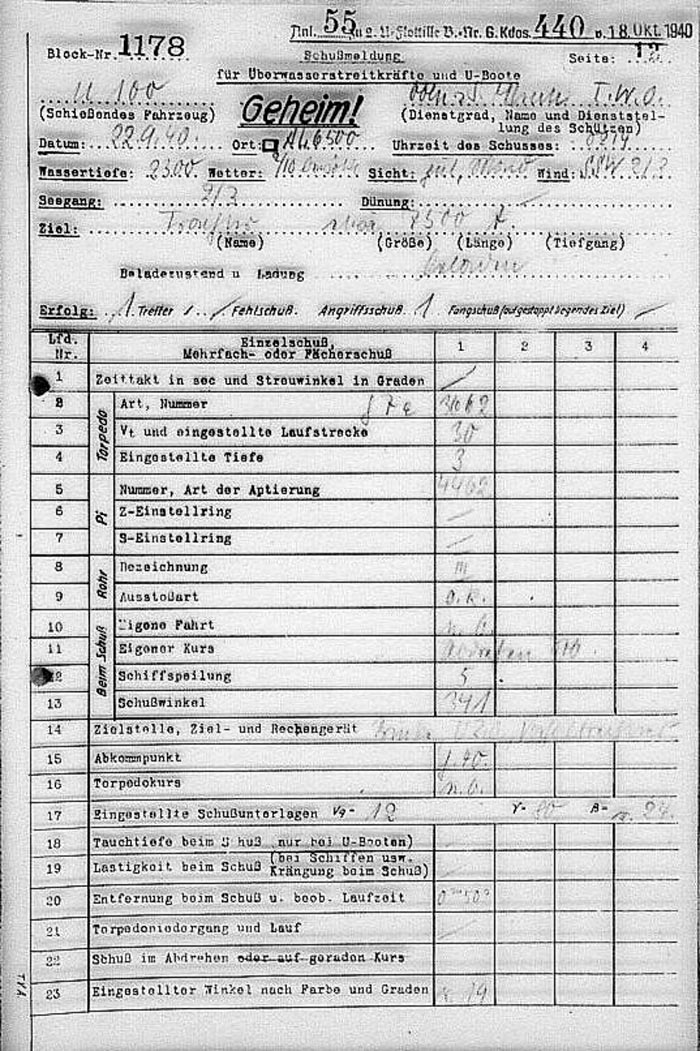 Anl. 55 zu 2. U-Flottille B.-Nr. G. Kdos. 440 v. 18. Okt. 1940
Block-Nr. 1178
Schußmeldung
Seite: 12
für Überwasserstreitkräfte und U-Boote
U 100
I.W.O.
(Schießendes Fahrzeug)
Geheim!
(Dienstgrad, Name und Dienststellung des Schützen)
Datum: 22.9.40. Ort: AL 6500 Uhrzeit des Schusses:
Wassertiefe: 2500 Wetter: Sicht: gut, Mond Wind: SSW 2/3
Seegang: 2/3 Dünung: —
Ziel: 7500 t.
(Name) (Größe) (Länge) (Tiefgang)
Beladezustand u Ladung beladen
Erfolg: 1 Treffer / Fehlschuß. Angriffsschuß. 1 Fangschuß (aufgestoppt liegendes Ziel) —
Lfd. Nr. Einzelschuß, Mehrfach- oder Fächerschuß 1 2 3 4
1 Zeittakt in sec und Streuwinkel in Graden —
Torpedo
2 Art, Nummer G 7 e
3 Vt und eingestellte Laufstrecke 30
4 Eingestellte Tiefe 3
Pi
5 Nummer, Art der Aptierung 4462
6 Z-Einstellring —
7 S-Einstellring —
Rohr
8 Bezeichnung III
9 Ausstoßart
Beim Schuß
10 Eigene Fahrt
11 Eigener Kurs
12 Schiffspeilung 5
13 Schußwinkel 341
14 Zielstelle, Ziel- und Rechengerät
15 Abkommpunkt
16 Torpedokurs
17 Eingestellte Schußunterlagen Vg= 12 γ= 80 B=
18 Tauchtiefe beim Schuß (nur bei U-Booten)
19 Lastigkeit beim Schuß (bei Schiffen usw. Krängung beim Schuß)
20 Entfernung beim Schuß u. beob. Laufzeit
21 Torpedoniedergang und Lauf
22 Schuß im Abdrehen oder auf geraden Kurs
23 Eingestellter Winkel nach Farbe und Graden
TVA